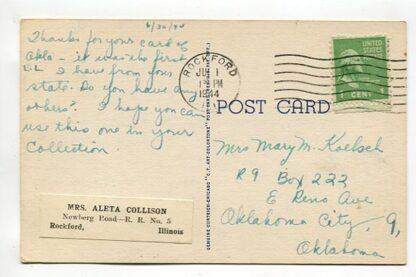 6/30/44
Thanks for your card of
Okla - it was the first
L.L I have from your
state. Do you have any
others? I hope you can
use this one in your
Collection.
MRS. ALETA COLLISON
Newberg Road—R. R. No. 5
Rockford, Illinois
GENUINE CURTEICH-CHICAGO "C.T. ART-COLORTONE" POST CARD
ROCKFORD
JUL 1
PM
1944
UNITED STATES
POSTAGE
1 CENT
POST CARD
Mrs Mary M. Koelsch
R9 Box 222
E Reno Ave
Oklahoma City, 9,
Oklahoma